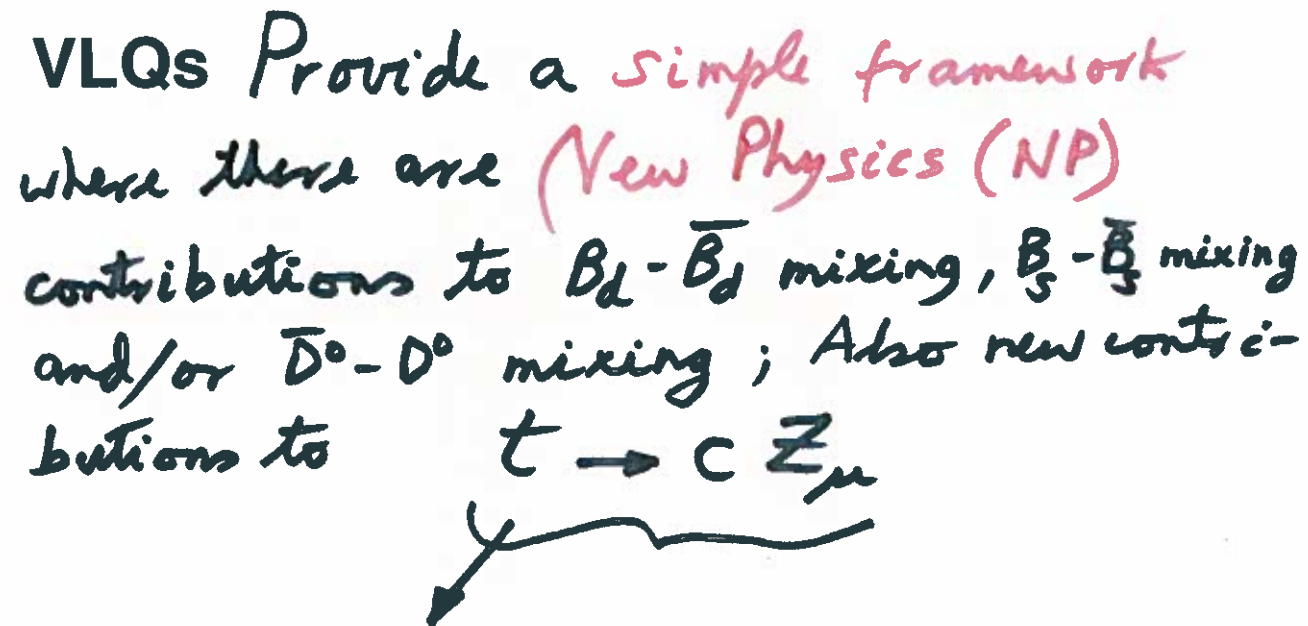 VLQs Provide a simple framework
where there are New Physics (NP)
contributions to B_d - B̅_d mixing, B_s - B̅_s mixing
and/or D̅⁰ - D⁰ mixing ; Also new contri-
butions to t → c Z_μ